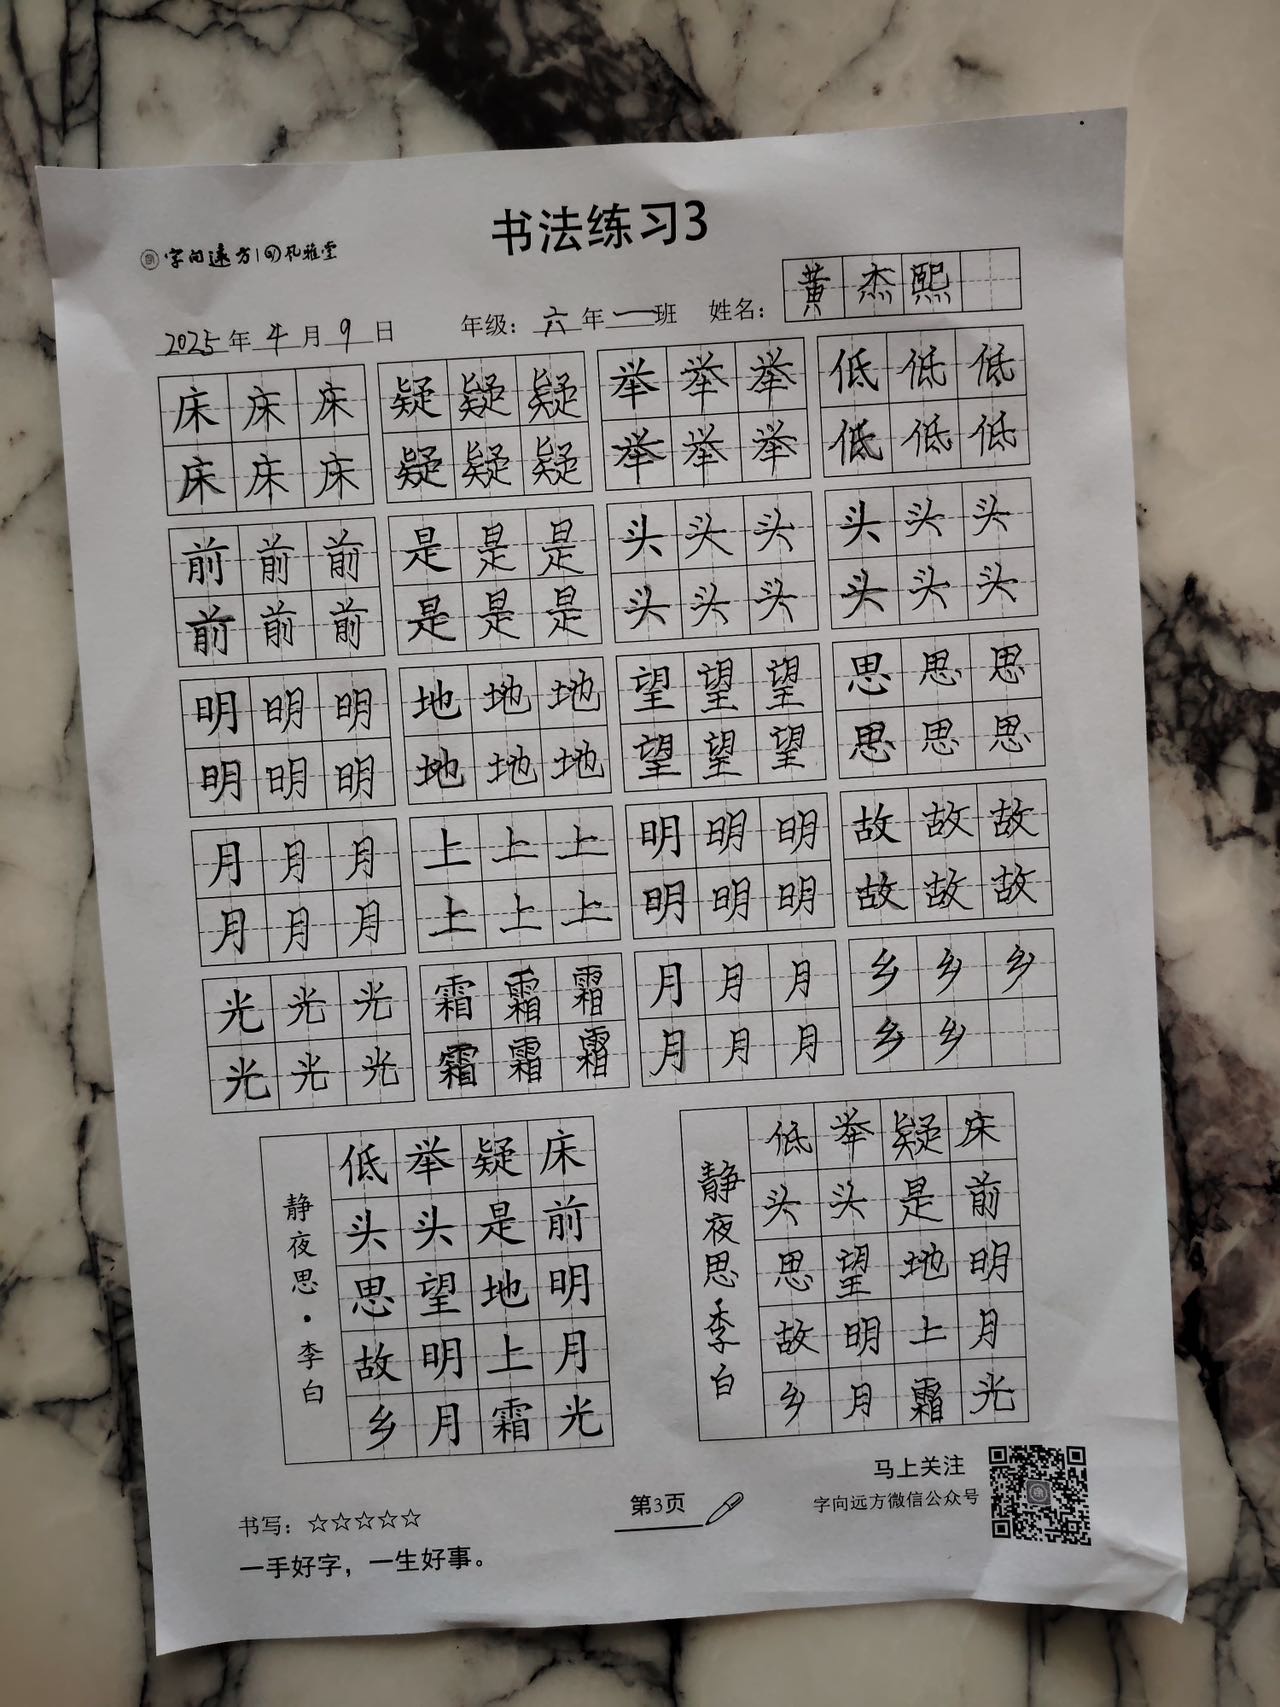 书法练习3
字向远方 风雅堂
2025年4月9日 年级：六年一班 姓名：黄杰熙
床床床 疑疑疑 举举举 低低低
床床床 疑疑疑 举举举 低低低
前前前 是是是 头头头 头头头
前前前 是是是 头头头 头头头
明明明 地地地 望望望 思思思
明明明 地地地 望望望 思思思
月月月 上上上 明明明 故故故
月月月 上上上 明明明 故故故
光光光 霜霜霜 月月月 乡乡乡
光光光 霜霜霜 月月月 乡乡
床前明月光
疑是地上霜
举头望明月
低头思故乡
静夜思·李白
床前明月光
疑是地上霜
举头望明月
低头思故乡
静夜思·李白
书写：☆☆☆☆☆
一手好字，一生好事。
第3页
马上关注
字向远方微信公众号